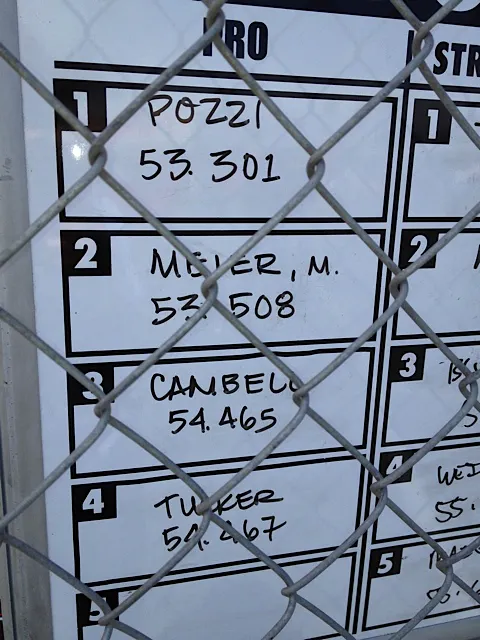 PRO
1
POZZI
53.301
2
MEIER, M.
53.508
3
CAMBELL
54.465
4
TUCKER
54.467
5
STR
1
2
3
4
WEI
55.
5